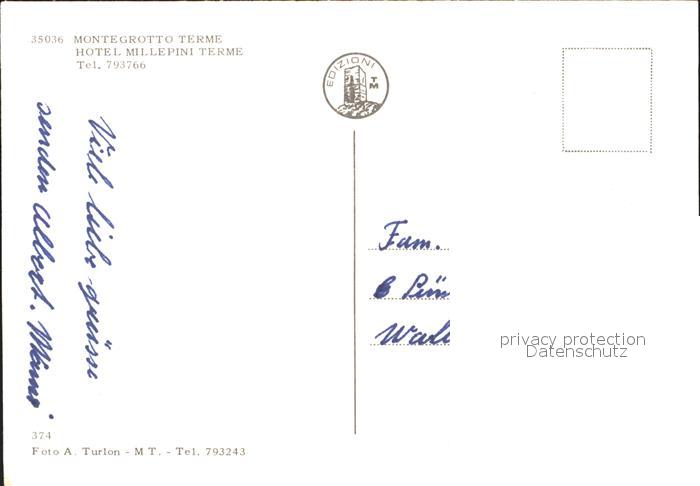 35036 MONTEGROTTO TERME
HOTEL MILLEPINI TERME
Tel. 793766
EDIZIONI
TM
Viele liebe grüsse
senden Albert. Mämi
Fam.
privacy protection
Datenschutz
374
Foto A. Turlon - M T. - Tel. 793243